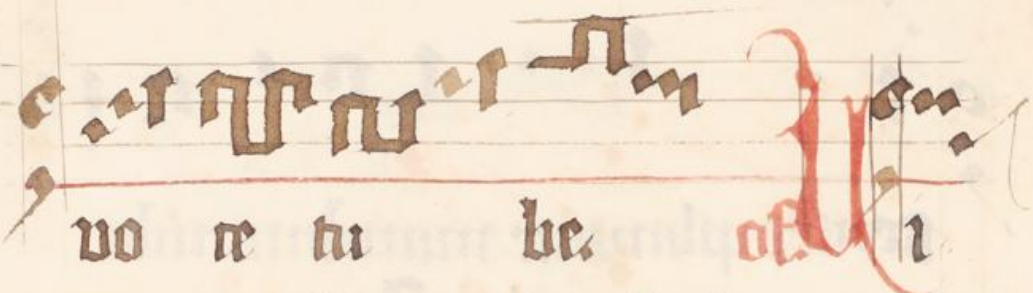 vo ce tu be. of. V i